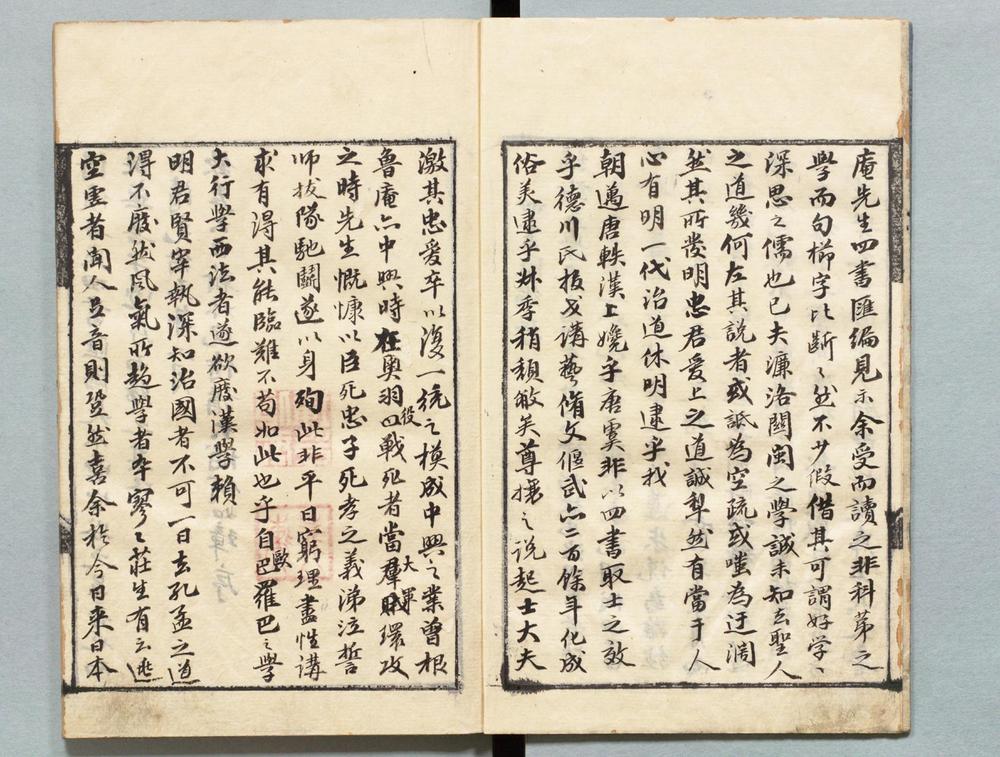 庵先生四書匯編見示余受而讀之非科第之
學而句櫛字比斷々然不少假借其可謂好学〻
深思之儒也已夫濂洛關閩之學誠未知去聖人
之道幾何左其說者或詆為空疏或嗤為迂濶
然其所發明忠君愛上之道誠犁然有當于人
心有明一代治道休明逮乎我
朝邁唐軼漢上嬈乎唐虞非以四書取士之效
乎德川氏投戈講藝脩文偃武亦二百餘年化成
俗美逮乎叔季稍頹敝矣尊攘之説起士大夫
激其忠爱卒以復一統之模成中興之業曽根
魯庵亦中興時在奥羽四戰死者當群賊環攻
役
大軍
之時先生慨慷以臣死忠子死孝之義涕泣誓
師拔隊馳鬪遂以身殉此非平日窮理盡性講
求有得其能臨難不苟如此也乎自巴羅巴之學
歐
大行學西法者遂欲廢漢學賴
明君賢宰執深知治國者不可一日去孔孟之道
得不廢然風氣所趨學者卒寥々莊生有云逃
空虛者聞人足音則跫然喜余於今日来日本